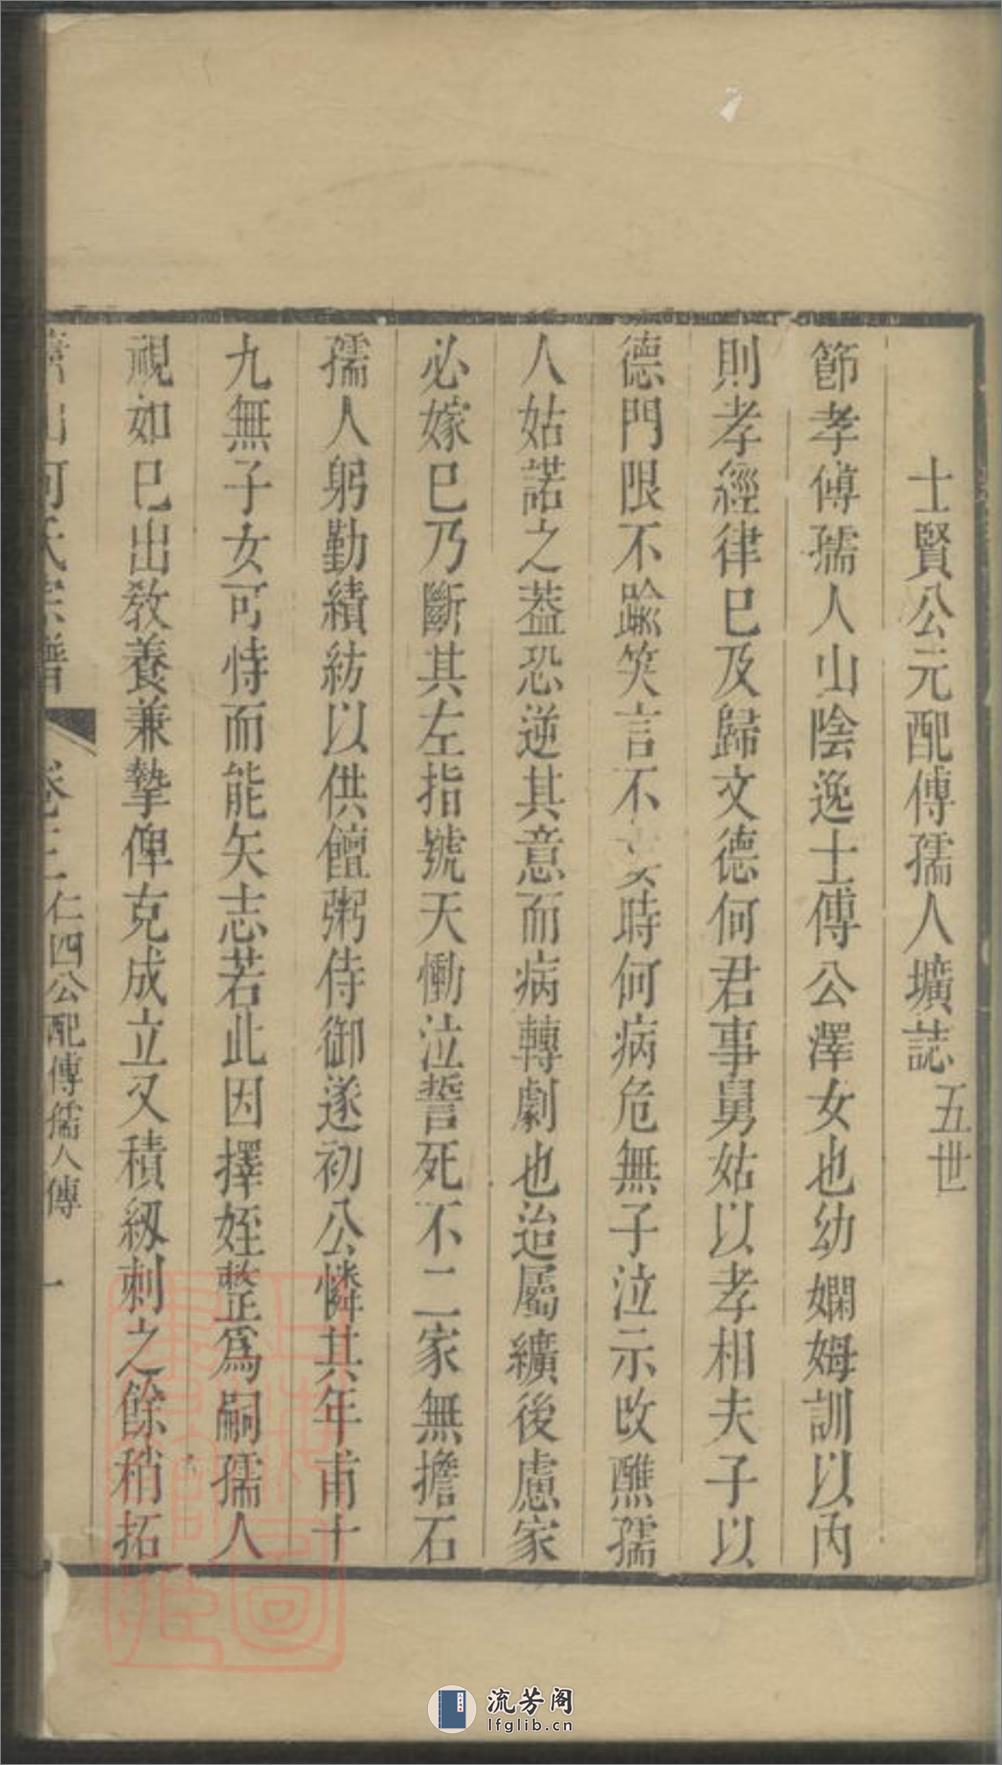 士賢公元配傅孺人壙誌 五世
節孝傅孺人山陰逸士傅公澤女也幼嫻姆訓以內
則孝經律巳及歸文德何君事舅姑以孝相夫子以
德門限不踰笑言不時何病危無子泣示改醮孺
人姑諾之葢恐逆其意而病轉劇也迨屬纊後慮家
必嫁巳乃斷其左指號天慟泣誓死不二家無擔石
孺人躬勤績紡以供饘粥侍御遂初公憐其年甫十
九無子女可恃而能矢志若此因擇姪整爲嗣孺人
視如巳出教養兼摯俾克成立又積級刺之餘稍拓
何氏宗譜 卷三 仁四公配傅孺人傳 一
流芳阁
lfglib.cn